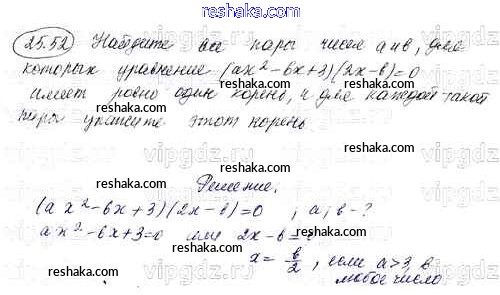 reshaka.com
25.52 Найдите все пары чисел a и b, для
которых уравнение (ax²-6x+3)(2x-b)=0
имеет ровно один корень, и для каждой такой
пары укажите этот корень
reshaka.com
reshaka.com
reshaka.com
Решение.
(ax²-6x+3)(2x-b)=0 , a, b-?
ax²-6x+3=0 или 2x-b=0
x= b/2, если a>3, b
любое число
reshaka.com
reshaka.com
reshaka.com